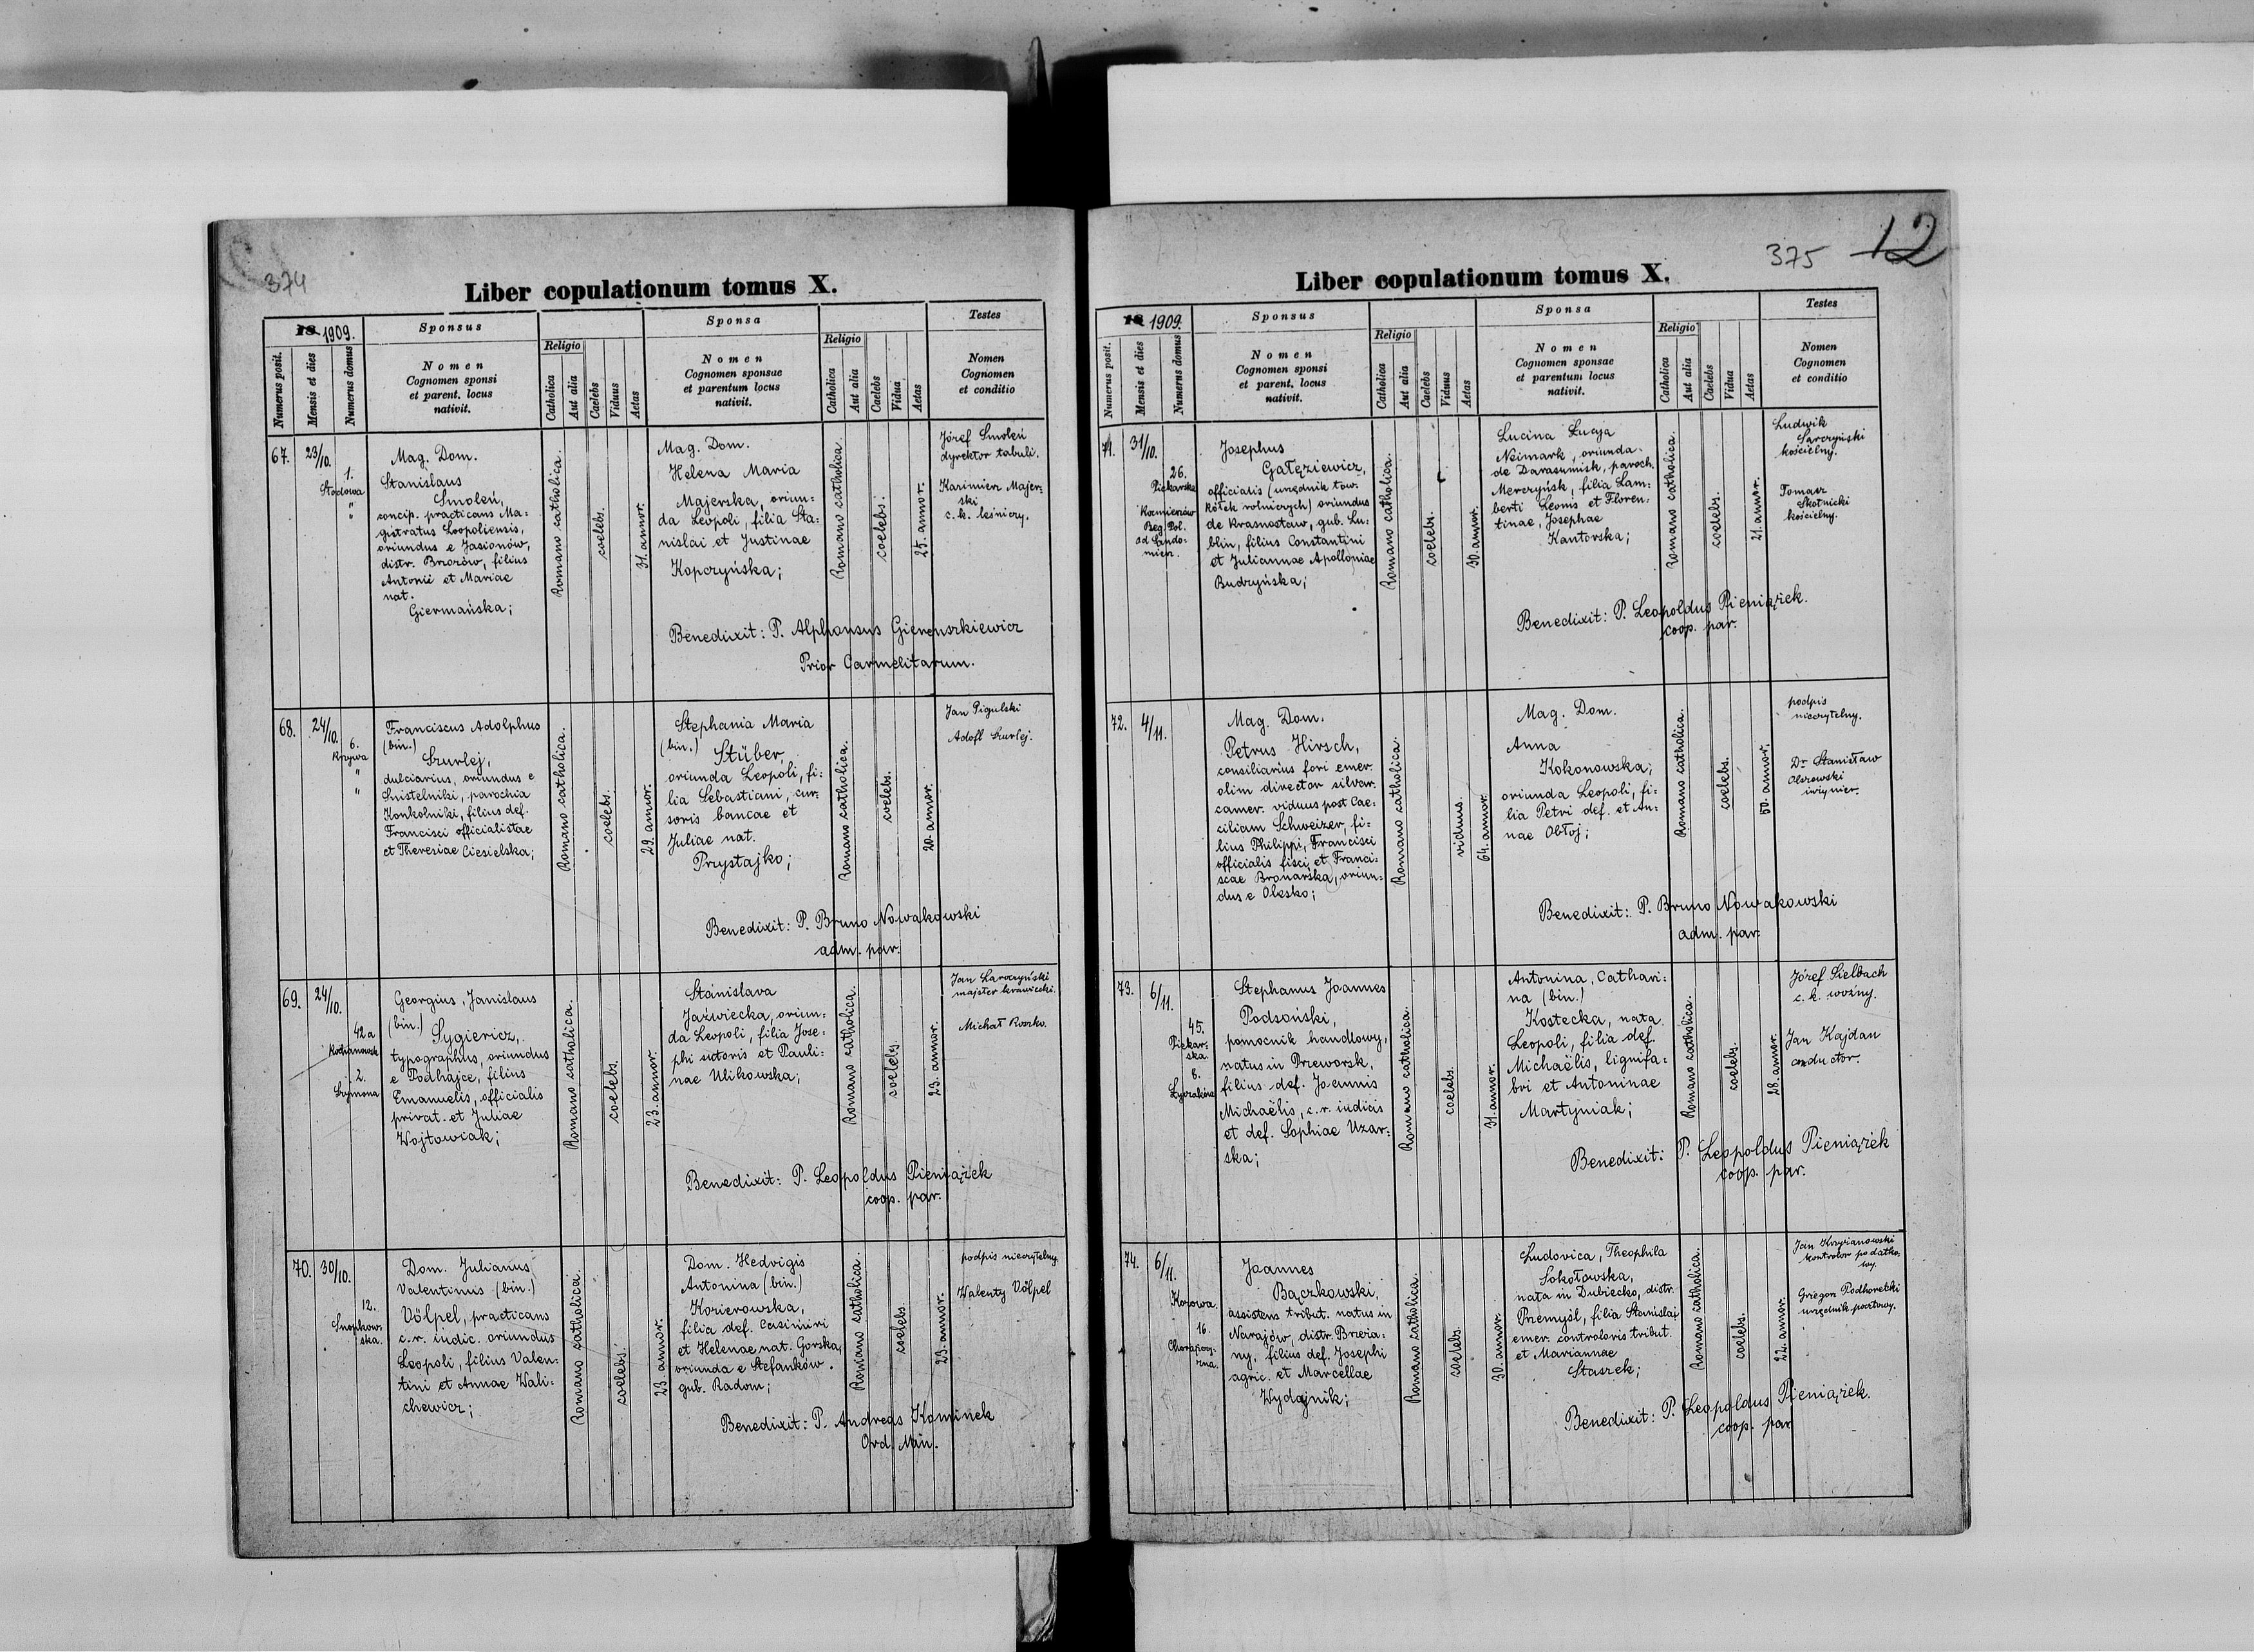 374
Liber copulationum tomus X.
18 1909.
Numerus posit.
Mensis et dies
Numerus domus
Sponsus
Nomen
Cognomen sponsi
et parent. locus
nativit.
Religio
Catholica
Aut alia
Caelebs
Viduus
Aetas
Sponsa
Nomen
Cognomen sponsae
et parentum locus
nativit.
Religio
Catholica
Aut alia
Caelebs
Vidua
Aetas
Testes
Nomen
Cognomen
et conditio
67.
23/10.
1.
"
"
Mag. Dom.
Stanislaus
Smoleń,
concip. practicans Ma-
gistratus Leopoliensis,
oriundus e Jasionów,
distr. Brzozów, filius
Antonii et Mariae
nat.
Giermańska;
Romano catholica.
coelebs.
31. annor.
Mag. Dom.
Helena Maria
Majerska, oriun-
da Leopoli, filia Sta-
nislai et Justinae
Kopczyńska;
Romano catholica.
coelebs.
25. annor.
Józef Smoleń
dyrektor tabuli.
Kazimierz Majer-
ski
c. k. leśniczy.
Benedixit: P. Alphonsus
Prior Carmelitarum.
68.
24/10.
6.
Krzywa
"
"
Franciscus Adolphus
(bin.)
Szurlej,
dulciarius, oriundus e
parochia
Konkolniki, filius def.
Francisci officialistae
et Theresiae Ciesielska;
Romano catholica.
coelebs.
29. annor.
Stephania Maria
(bin.)
Stüber,
oriunda Leopoli, fi-
lia Sebastiani, cur-
soris bancae et
Juliae nat.
Przystajko;
Romano catholica.
coelebs.
20. annor.
Jan Pigulski
Adolf Szurlej.
Benedixit: P. Bruno Nowakowski
adm. par.
69.
24/10.
42a
2.
Georgius, Janislaus
(bin.)
Sygiericz,
typographus, oriundus
e Podhajce, filius
Emanuelis, officialis
privat. et Juliae
Wojtowiak;
Romano catholica.
coelebs.
23. annor.
Stanislava
Jaźwiecka, oriun-
da Leopoli, filia Jose-
phi sutoris et Pauli-
nae Ulikowska;
Romano catholica.
coelebs.
23. annor.
Jan
majster krawiecki.
Michał Roszko.
Benedixit: P. Leopoldus Pieniążek
coop. par.
70.
30/10.
12.
Snopkow-
ska.
Dom. Julianus
Valentinus (bin.)
Völpel, practicans
c. r. iudic. oriundus
Leopoli, filius Valen-
tini et Annae Wali-
chewicz;
Romano catholica.
coelebs.
23. annor.
Dom. Hedvigis
Antonina (bin.)
Kozierowska,
filia def. Casimiri
et Helenae nat. Gorska,
oriunda e Stefanków.
gub. Radom;
Romano catholica.
coelebs.
23. annor.
podpis nieczytelny.
Walenty Völpel
Benedixit: P. Andreas Kominek
Ord. Min.
375
12
Liber copulationum tomus X.
18 1909.
Numerus posit.
Mensis et dies
Numerus domus
Sponsus
Nomen
Cognomen sponsi
et parent. locus
nativit.
Religio
Catholica
Aut alia
Caelebs
Viduus
Aetas
Sponsa
Nomen
Cognomen sponsae
et parentum locus
nativit.
Religio
Catholica
Aut alia
Caelebs
Vidua
Aetas
Testes
Nomen
Cognomen
et conditio
71.
31/10.
26.
Piekarska
Reg. Pol.
ad Sando-
mierz.
Josephus
Gałęziewicz,
officialis (urzędnik tow.
kółek rolniczych) oriundus
de Krasnostaw, gub. Lu-
blin, filius Constantini
et Juliannae Apolloniae
Budzyńska;
Romano catholica.
coelebs.
30. annor.
Lucina Łucya
Neimark, oriunda
de Darasumisk, paroch.
Merczyńsk, filia Lam-
berti Leonis et Floren-
tinae, Josephae
Kantorska;
Romano catholica.
coelebs.
21. annor.
Ludwik
kościelny.
Tomasz
Skotnicki
kościelny.
Benedixit: P. Leopoldus Pieniążek.
coop. par.
72.
4/11.
Mag. Dom.
Petrus Hirsch,
consiliarius fori emer.
olim director silvar.
camer. viduus post Cae-
ciliam Schweizer, fi-
lius Philippi, Francisci
officialis fisci, et Franci-
scae Bronarska, oriun-
dus e Olesko;
Romano catholica.
viduus.
64. annor.
Mag. Dom.
Anna
Kokonowska;
oriunda Leopoli, fi-
lia Petri def. et An-
nae Obłoj;
Romano catholica.
coelebs.
50. annor.
podpis
nieczytelny.
Dr. Stanisław
Olszewski
inżynier.
Benedixit: P. Bruno Nowakowski
adm. par.
73.
6/11.
45.
Piekar-
ska.
8.
Stephanus Joannes
Podsoński,
pomocnik handlowy,
natus in Przeworsk,
filius def. Joannis
Michaëlis, c. r. iudicis
et def. Sophiae Uzar-
ska;
Romano catholica.
coelebs.
31. annor.
Antonina, Cathari-
na (bin.)
Kostecka, nata
Leopoli, filia def.
Michaëlis, lignifa-
bri et Antoninae
Martyniak;
Romano catholica.
coelebs.
28. annor.
Józef Sielbach
c. k. woźny.
Jan Kajdan
conductor.
Benedixit: P. Leopoldus Pieniążek
coop. par.
74.
6/11.
Kozowa.
16.
Chorążczy-
zna.
Joannes
Bączkowski,
assistens tribut. natus in
Narajów, distr. Brzeża-
ny, filius def. Josephi
agric. et Marcellae
Wydajnik;
Romano catholica.
coelebs.
30. annor.
Ludovica, Theophila
Sokołowska,
nata in Dubiecko, distr.
Przemyśl, filia Stanislai
emer. controloris tribut.
et Mariannae
Staszek;
Romano catholica.
coelebs.
22. annor.
Jan Krzyżanowski
kontrolor podatko-
wy.
Gregor Podhorecki
urzędnik pocztowy.
Benedixit: P. Leopoldus Pieniążek.
coop. par